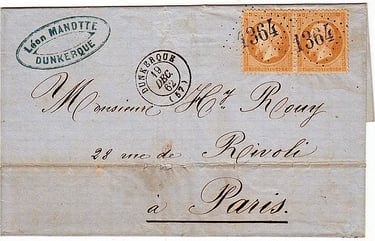 Léon MANOTTE
DUNKERQUE
DUNKERQUE
19
DEC.
62
(57)
1364
1364
Monsieur Hy Rouy
28 rue de Rivoli
à Paris.